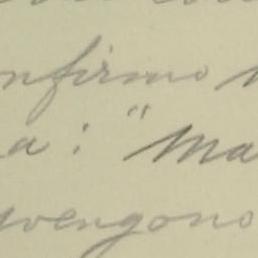 nfirmo
a: "Ma
vengono